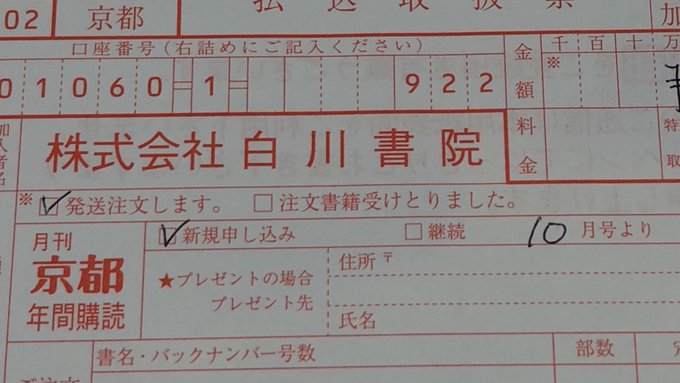 02 京都 払込取扱票 加
口座番号(右詰めにご記入ください) 金額 千 百 十 万
01060-1- 922 ※
料金 特
加入者名 株式会社 白川書院
※ ☑発送注文します。 □注文書籍受けとりました。
月刊 京都 年間購読
☑新規申し込み □継続 10月号より
★プレゼントの場合 プレゼント先
住所〒
氏名
書名・バックナンバー号数 部数